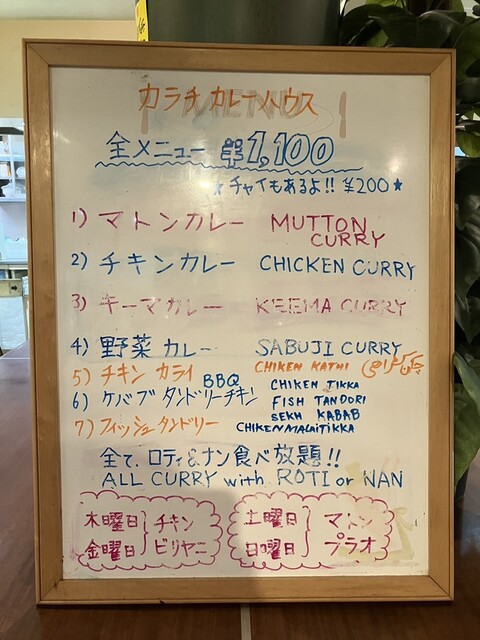 カラチ カレーハウス
全メニュー ¥1,100
★チャイもあるよ!! ¥200★
1) マトンカレー MUTTON CURRY
2) チキンカレー CHICKEN CURRY
3) キーマカレー KEEMA CURRY
4) 野菜 カレー SABUJI CURRY
5) チキン カライ CHIKEN KATHI
BBQ CHIKEN TIKKA
6) ケバブ タンドリーチキン FISH TANDORI
SEKH KABAB
7) フィッシュタンドリー CHIKENMALAITIKKA
全て、ロティ&ナン食べ放題!!
ALL CURRY with ROTI or NAN
木曜日 金曜日 } チキン ビリヤニ
土曜日 日曜日 } マトン プラオ